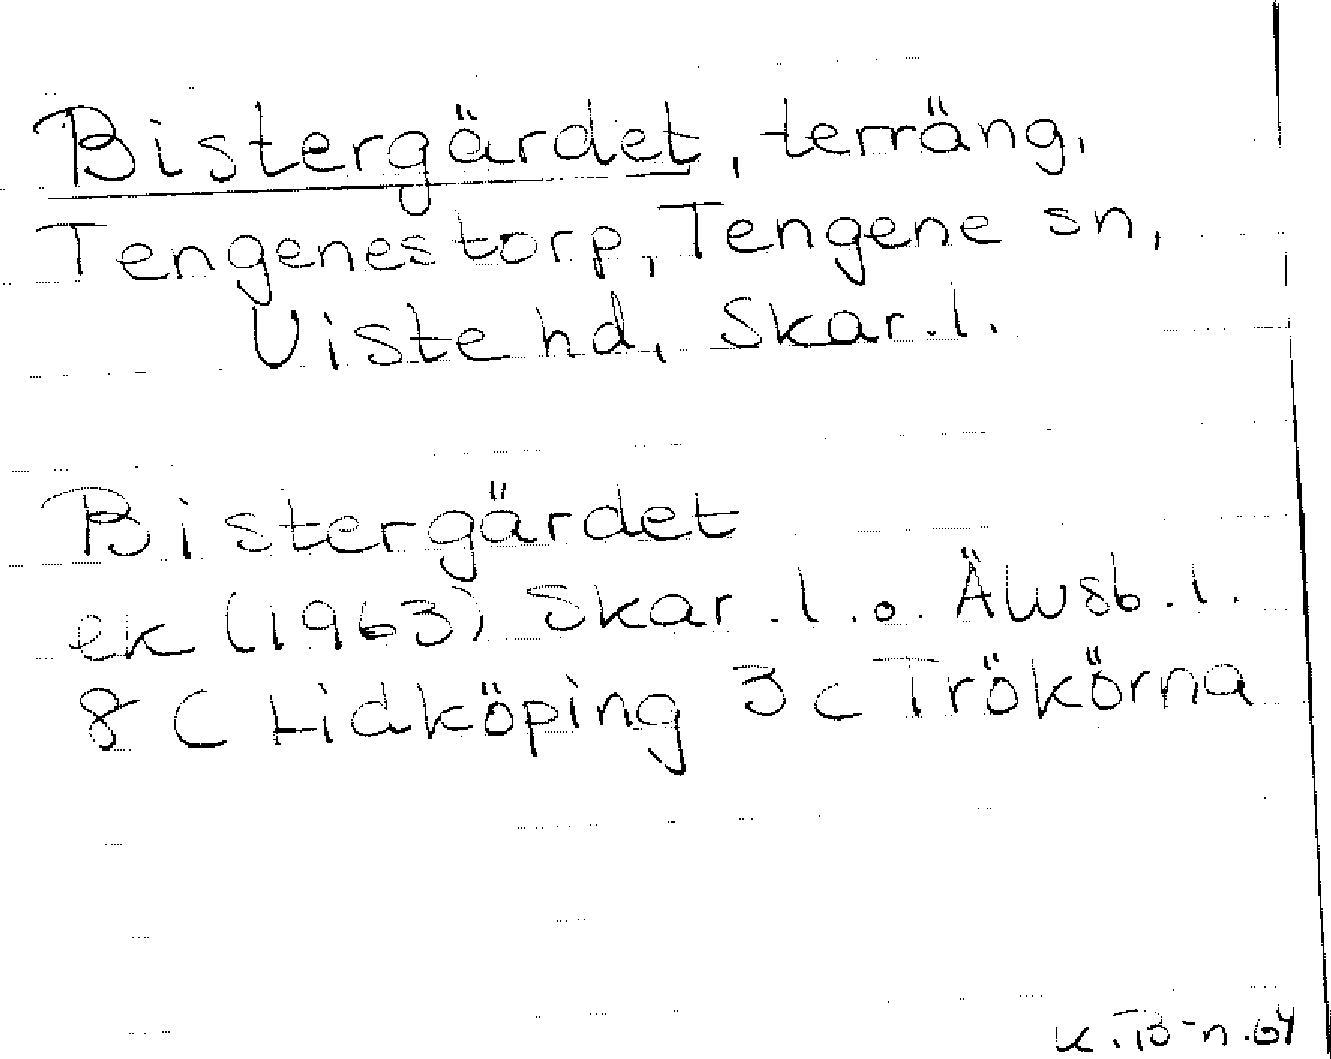 Bistergärdet, terräng,
Tengenestorp, Tengene sn,
Viste hd, Skar. l.
Bistergärdet
ek (1963) Skar. l. o. Älvsb. l.
8 C Lidköping 3 c Trökörna
K. B-n. 64